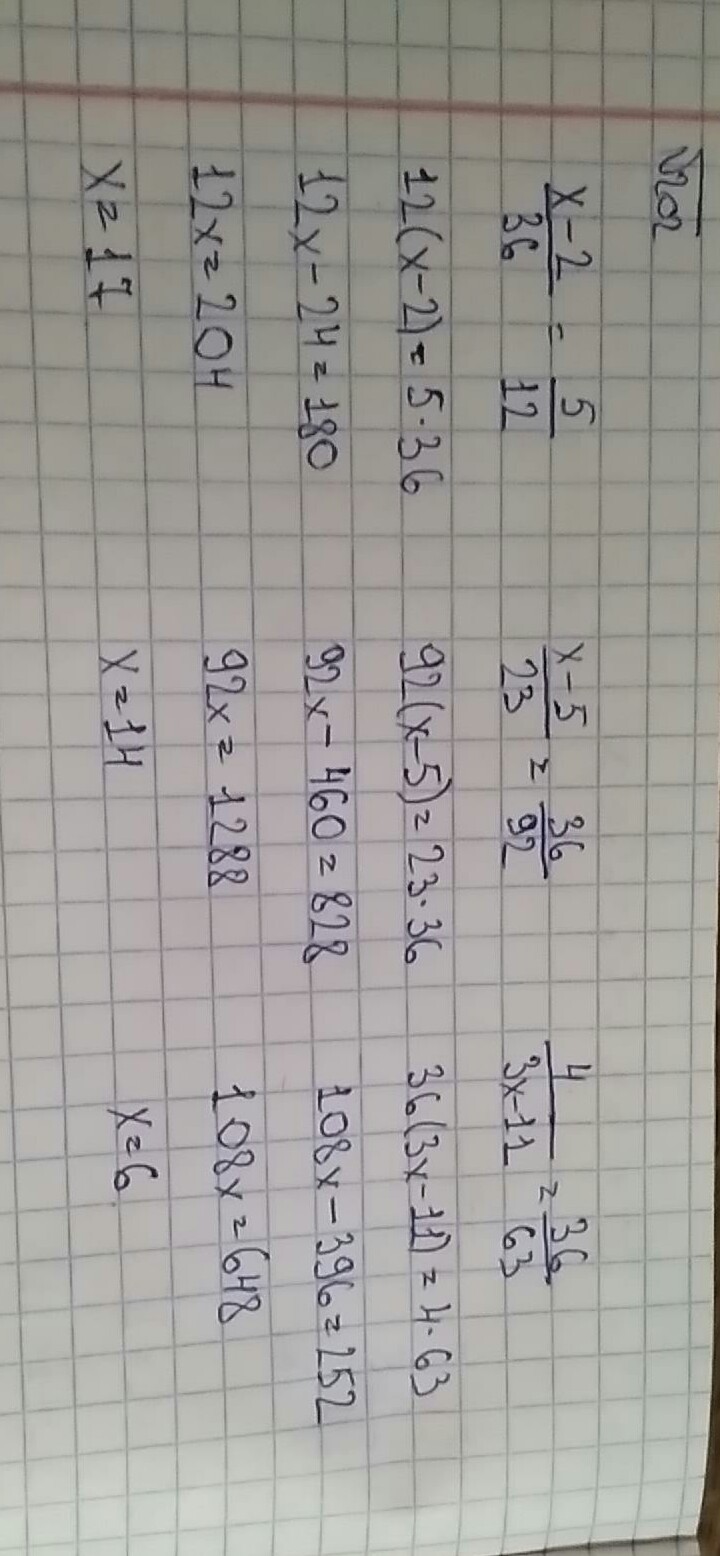 x-2/36 = 5/12
12(x-2)=5·36
12x-24=180
12x=204
x=17
x-5/23 = 36/92
92(x-5)=23·36
92x-460=828
92x=1288
x=14
4/3x-11 = 36/63
36(3x-11)=4·63
108x-396=252
108x=648
x=6